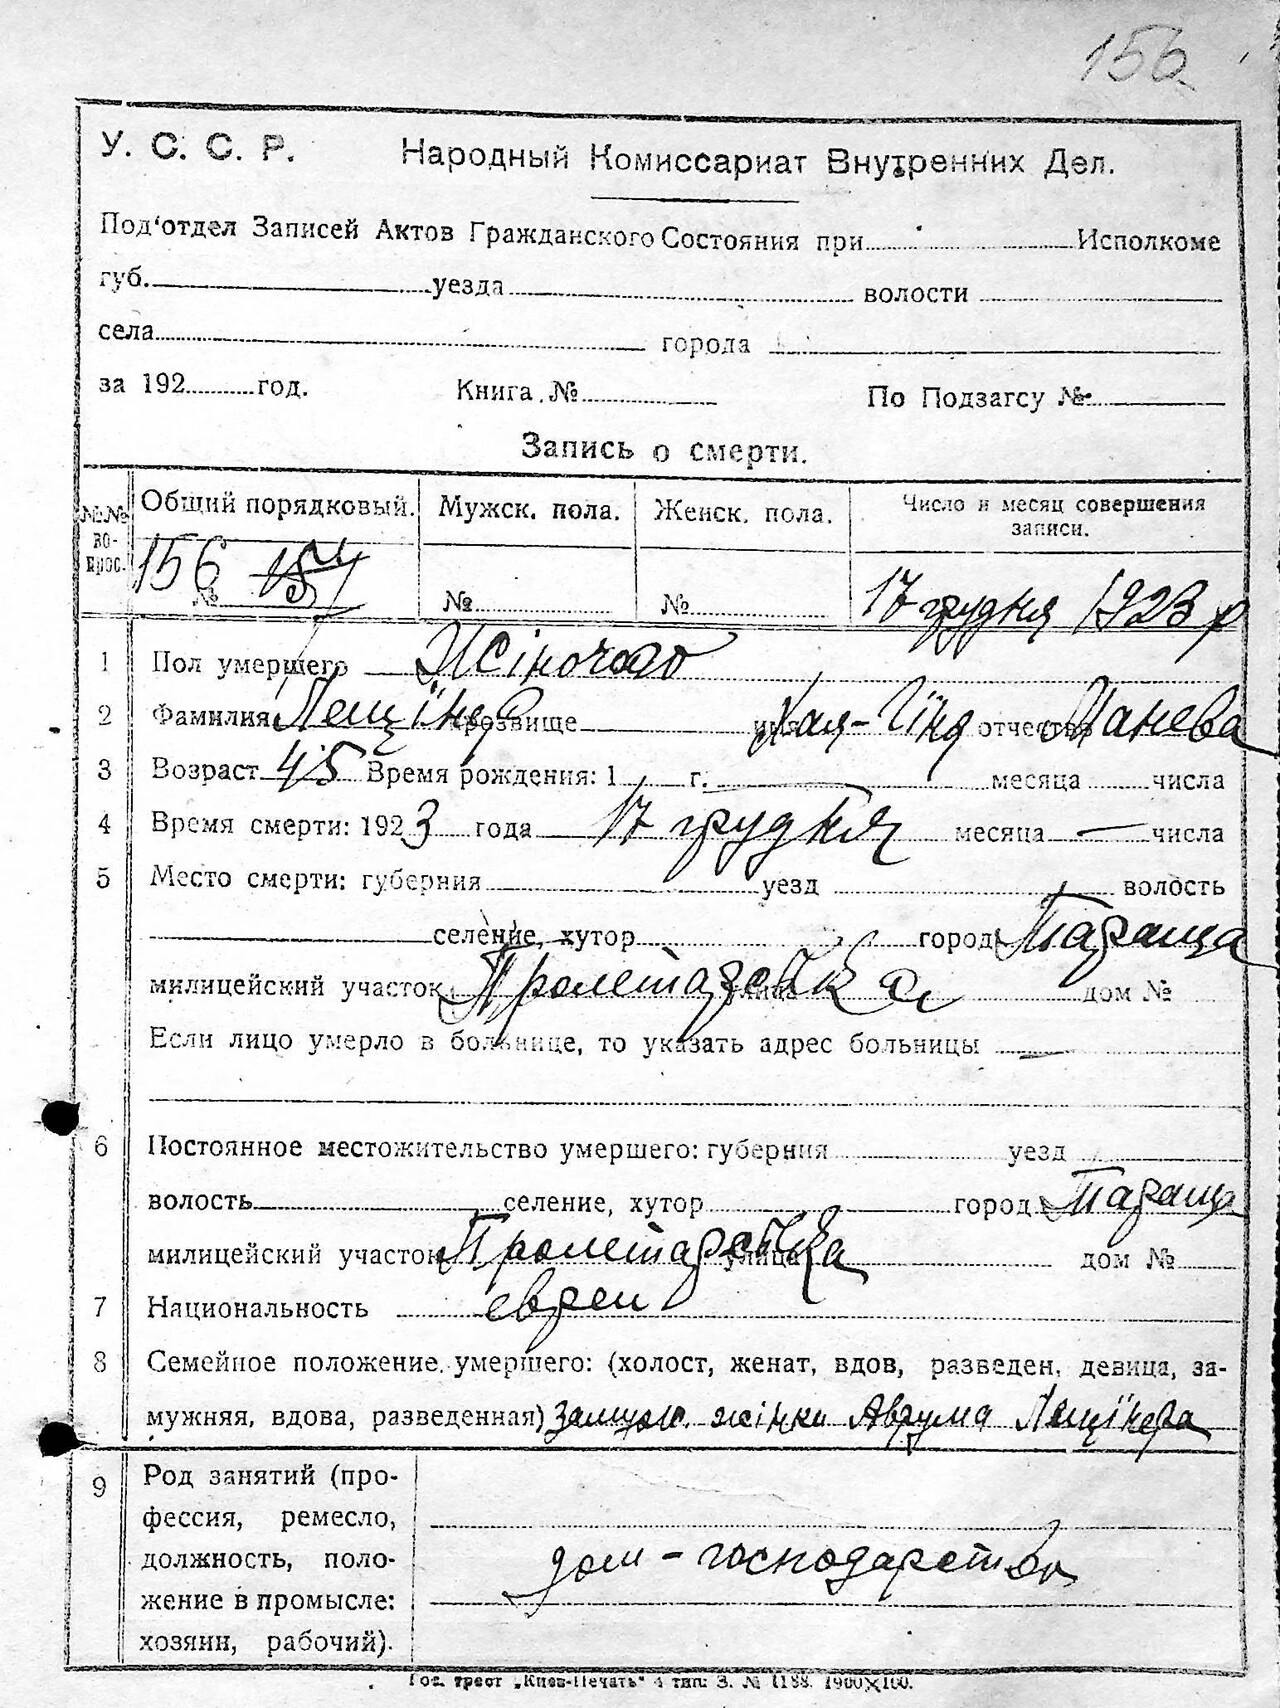 156
У. С. С. Р. Народный Комиссариат Внутренних Дел.
Под'отдел Записей Актов Гражданского Состояния при Исполкоме
губ. уезда волости
села города
за 192 год. Книга № По Подзагсу №
Запись о смерти.
№№ во-прос. Общий порядковый. Мужск. пола. Женск. пола. Число и месяц совершения записи.
156 № 154 № № 17 грудня 1923 р
1 Пол умершего Жіночого
2 Фамилия прозвище имя Хая- отчество Манева
3 Возраст 45 Время рождения: 1 г. месяца числа
4 Время смерти: 1923 года 17 грудня месяца — числа
5 Место смерти: губерния уезд волость
селение, хутор город Тараща
милицейский участок Пролетарська улица дом №
Если лицо умерло в больнице, то указать адрес больницы —
6 Постоянное местожительство умершего: губерния уезд
волость селение, хутор город Тараща
милицейский участок Пролетарська улица дом №
7 Национальность евреи
8 Семейное положение умершего: (холост, женат, вдов, разведен, девица, за-
мужняя, вдова, разведенная) замуж. жінка Аврума Лещінера
9 Род занятий (про-
фессия, ремесло,
должность, поло- дом-господарство
жение в промысле:
хозяин, рабочий).
Гос. трест „Киев-Печать" 4 тип. З. № 1188. 1900×100.